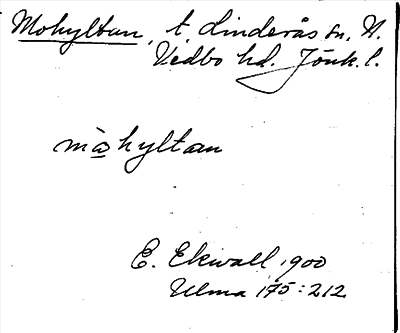 Mohyltan, t. Linderås sn. N.
Vedbo hd. Jönk. l.
måhyltan
E. Ekwall 1900
Ulma 175:212